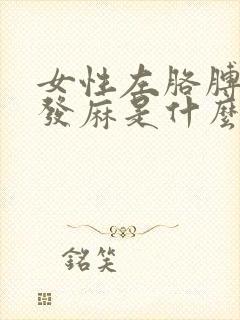 女性左胳膊
發麻是什麼
銘笑